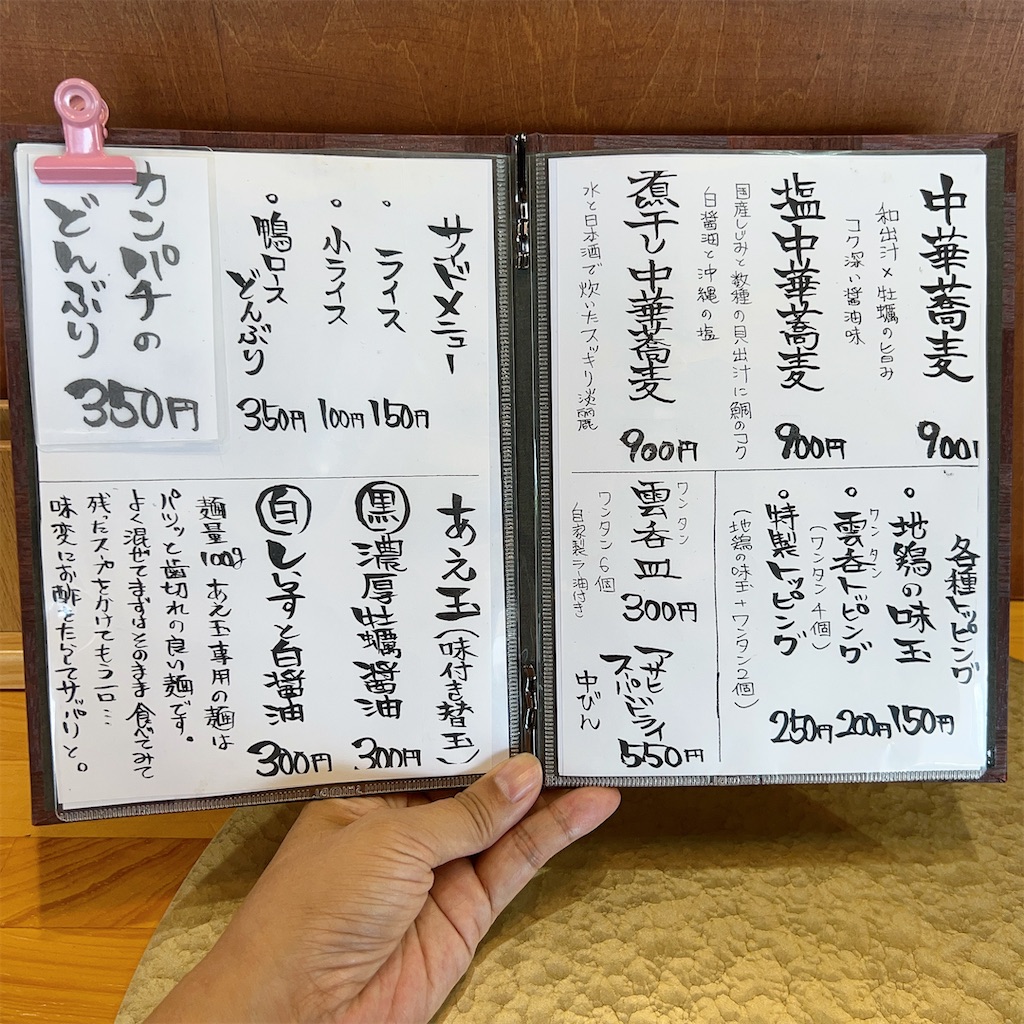 中華蕎麦
和出汁×牡蠣の旨み
コク深い醤油味
900
塩中華蕎麦
国産しじみと数種の貝出汁に鯛のコク
白醤油と沖縄の塩
900円
煮干し中華蕎麦
水と日本酒で炊いたスッキリ淡麗
900円
各種トッピング
。地鶏の味玉
150円
。雲呑トッピング
ワンタン
(ワンタン4個)
200円
。特製トッピング
(地鶏の味玉+ワンタン2個)
250円
雲呑皿
ワンタン
ワンタン6個
自家製ラー油付き
300円
アサヒ
スーパードライ
中びん
550円
サイドメニュー
。ライス
150円
。小ライス
100円
。鴨ロース
どんぶり
350円
カンパチの
どんぶり
350円
あえ玉(味付き替玉)
黒濃厚牡蠣醤油
300円
白しらすと白醤油
300円
麺量100g あえ玉専用の麺は
パツッと歯切れの良い麺です。
よく混ぜてまずはそのまま食べてみて
残ったスープをかけてもう一口…
味変にお酢をたらしてサッパリと。